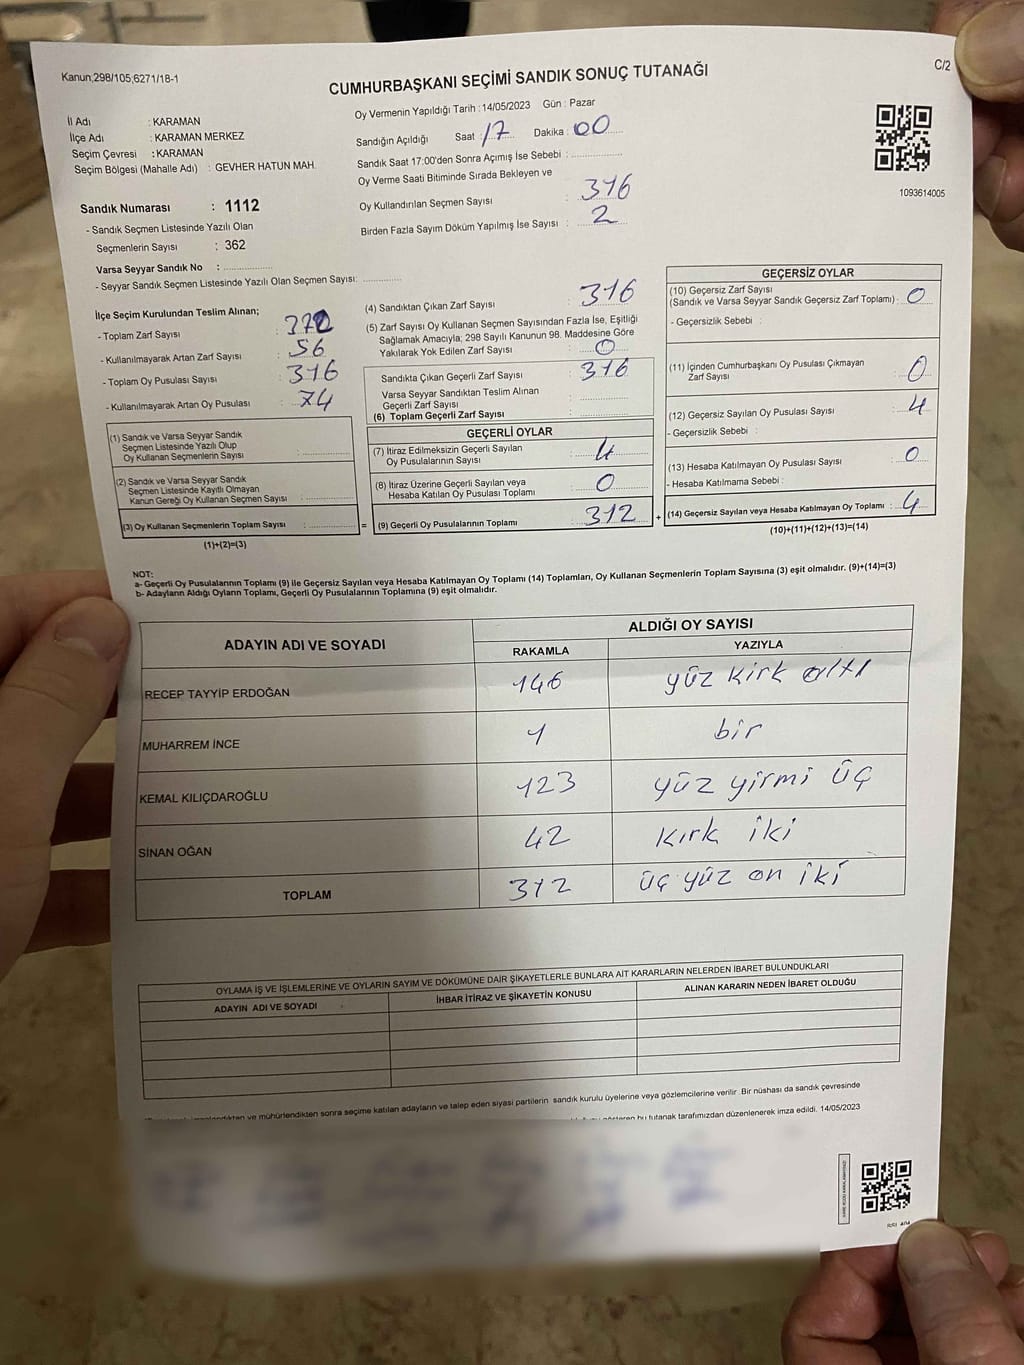 Kanun;298/105,6271/18-1
C/2
CUMHURBAŞKANI SEÇİMİ SANDIK SONUÇ TUTANAĞI
İl Adı : KARAMAN
İlçe Adı : KARAMAN MERKEZ
Seçim Çevresi : KARAMAN
Seçim Bölgesi (Mahalle Adı) : GEVHER HATUN MAH.
Sandık Numarası : 1112
- Sandık Seçmen Listesinde Yazılı Olan
Seçmenlerin Sayısı : 362
Varsa Seyyar Sandık No :
- Seyyar Sandık Seçmen Listesinde Yazılı Olan Seçmen Sayısı:
Oy Vermenin Yapıldığı Tarih : 14/05/2023 Gün : Pazar
Sandığın Açıldığı Saat : 17 Dakika : 00
Sandık Saat 17:00'den Sonra Açımış İse Sebebi :
Oy Verme Saati Bitiminde Sırada Bekleyen ve
Oy Kullandırılan Seçmen Sayısı : 316
Birden Fazla Sayım Döküm Yapılmış İse Sayısı : 2
1093614005
İlçe Seçim Kurulundan Teslim Alınan;
- Toplam Zarf Sayısı :
- Kullanılmayarak Artan Zarf Sayısı : 56
- Toplam Oy Pusulası Sayısı : 316
- Kullanılmayarak Artan Oy Pusulası : 74
(1) Sandık ve Varsa Seyyar Sandık
Seçmen Listesinde Yazılı Olup
Oy Kullanan Seçmenlerin Sayısı :
(2) Sandık ve Varsa Seyyar Sandık
Seçmen Listesinde Kayıtlı Olmayan
Kanun Gereği Oy Kullanan Seçmen Sayısı :
(3) Oy Kullanan Seçmenlerin Toplam Sayısı : =
(1)+(2)=(3)
(4) Sandıktan Çıkan Zarf Sayısı : 316
(5) Zarf Sayısı Oy Kullanan Seçmen Sayısından Fazla İse, Eşitliği
Sağlamak Amacıyla; 298 Sayılı Kanunun 98. Maddesine Göre
Yakılarak Yok Edilen Zarf Sayısı : 0
Sandıkta Çıkan Geçerli Zarf Sayısı : 316
Varsa Seyyar Sandıktan Teslim Alınan
Geçerli Zarf Sayısı :
(6) Toplam Geçerli Zarf Sayısı :
GEÇERLİ OYLAR
(7) İtiraz Edilmeksizin Geçerli Sayılan
Oy Pusulalarının Sayısı : 4
(8) İtiraz Üzerine Geçerli Sayılan veya
Hesaba Katılan Oy Pusulası Toplamı : 0
(9) Geçerli Oy Pusulalarının Toplamı : 312 +
GEÇERSİZ OYLAR
(10) Geçersiz Zarf Sayısı
(Sandık ve Varsa Seyyar Sandık Geçersiz Zarf Toplamı) : 0
- Geçersizlik Sebebi :
(11) İçinden Cumhurbaşkanı Oy Pusulası Çıkmayan
Zarf Sayısı : 0
(12) Geçersiz Sayılan Oy Pusulası Sayısı : 4
- Geçersizlik Sebebi :
(13) Hesaba Katılmayan Oy Pusulası Sayısı : 0
- Hesaba Katılmama Sebebi :
(14) Geçersiz Sayılan veya Hesaba Katılmayan Oy Toplamı : 4
(10)+(11)+(12)+(13)=(14)
NOT:
a- Geçerli Oy Pusulalarının Toplamı (9) ile Geçersiz Sayılan veya Hesaba Katılmayan Oy Toplamı (14) Toplamları, Oy Kullanan Seçmenlerin Toplam Sayısına (3) eşit olmalıdır. (9)+(14)=(3)
b- Adayların Aldığı Oyların Toplamı, Geçerli Oy Pusulalarının Toplamına (9) eşit olmalıdır.
ADAYIN ADI VE SOYADI
ALDIĞI OY SAYISI
RAKAMLA YAZIYLA
RECEP TAYYİP ERDOĞAN 146 yüz kırk altı
MUHARREM İNCE 1 bir
KEMAL KILIÇDAROĞLU 123 yüz yirmi üç
SİNAN OĞAN 42 kırk iki
TOPLAM 312 üç yüz on iki
OYLAMA İŞ VE İŞLEMLERİNE VE OYLARIN SAYIM VE DÖKÜMÜNE DAİR ŞİKAYETLERLE BUNLARA AİT KARARLARIN NELERDEN İBARET BULUNDUKLARI
ADAYIN ADI VE SOYADI İHBAR İTİRAZ VE ŞİKAYETİN KONUSU ALINAN KARARIN NEDEN İBARET OLDUĞU
ve mühürlendikten sonra seçime katılan adayların ve talep eden siyasi partilerin sandık kurulu üyelerine veya gözlemcilerine verilir. Bir nüshası da sandık çevresinde
bu tutanak tarafımızdan düzenlenerek imza edildi. 14/05/2023